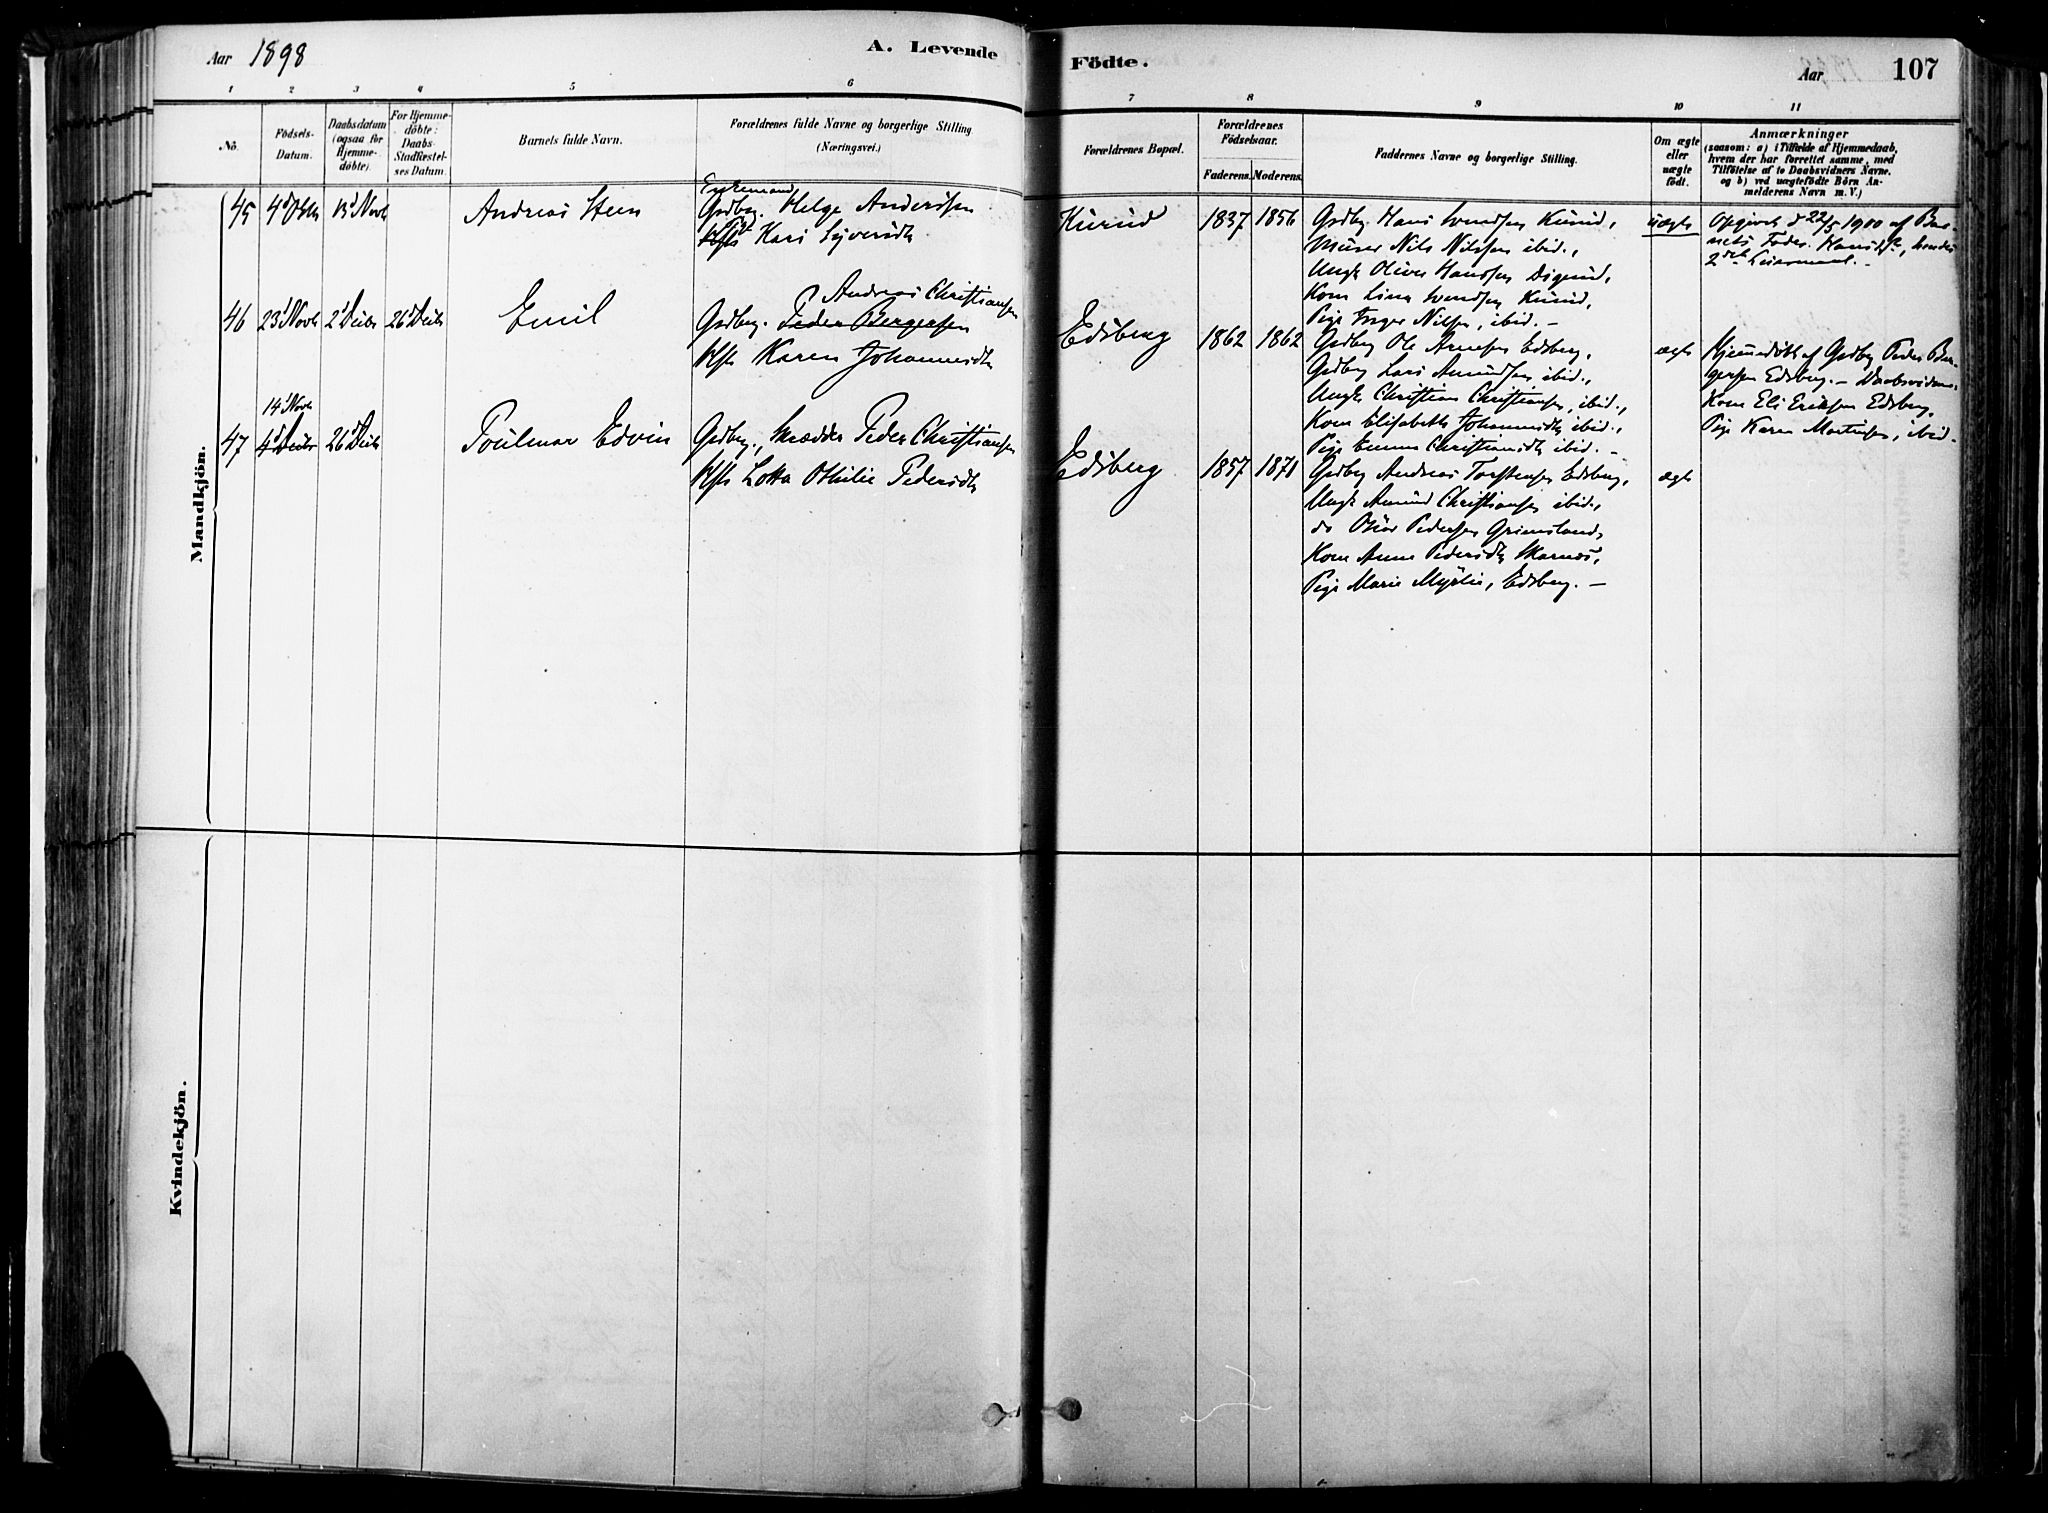 Aar 1898
A. Levende
Födte.
Aar
107
1
2
3
4
5
6
7
8
9
10
11
No.
Födsels-
Datum.
Daabsdatum
(ogsaa for
Hjemme-
döbte).
For Hjemme-
döbte:
Daabs-
Stadfæstel-
ses Datum.
Barnets fulde Navn.
Forældrenes fulde Navne og borgerlige Stilling
(Næringsvei.)
Forældrenes Bopæl.
Forældrenes
Födselsaar.
Faderens.
Moderens.
Faddernes Navne og borgerlige Stilling.
Om ægte
eller
uægte
födt.
Anmærkninger
(saasom: a) i Tilfælde af Hjemmedaab,
hvem der har forrettet samme, med
Tilföielse af to Daabsvidners Navne.
og b) ved uægtefödte Börn An-
melderens Navn m. V.)
Mandkjön.
45
4d Oktb
13d Novb
Andreas Steen
Enkemand
Grdbr. Helge Anderssen
Kari Syversdtr
Kurud
1837
1856
Grdbr Hans Svendsen Kurud,
Murer Nils Nilssen ibid.,
Ungk Oliver Hanssen Digerud,
Kone Lina Svendsen Kurud,
Pige Inger Nilsen, ibid. –
uægte
Opgivet d 22/5 1900 af Bar-
nets Fader. Hans 1ste, hendes
2det Leiermaal. –
46
23d Novb
2d Decbr
26d Decbr
Emil
Andreas Christiansen
Grdbr. Peder Bergersen
Hst Karen Johannesdtr
Edsberg
1862
1862
Grdbr Ole Arnesen Edsberg,
Grdbr Lars Amundsen ibid.,
Ungk Christian Christiansen, ibid.,
Kone Elisabeth Johannesdtr ibid.,
Pige Emma Christiansdtr ibid. –
ægte
Hjemmedöbt af Grdbr Peder Ber-
gersen Edsberg. – Daabsvidner:
Kone Eli Eriksen Edsberg,
Pige Karen Martinsen, ibid.
47
14d Novb
4d Decbr
26d Decbr
Toulmar Edvin
Grdbr, Skrædder Peder Christiansen
Hst Lotta Othilie Pedersdtr
Edsberg
1857
1871
Grdbr Andreas Torstensen Edsberg,
Ungk Amund Christiansen ibid.,
do Oskar Pedersen Grimsland,
Kone Anne Pedersdtr Skarnes,
Pige Marie Myrlie, Edsberg. –
ægte
Kvindekjön.